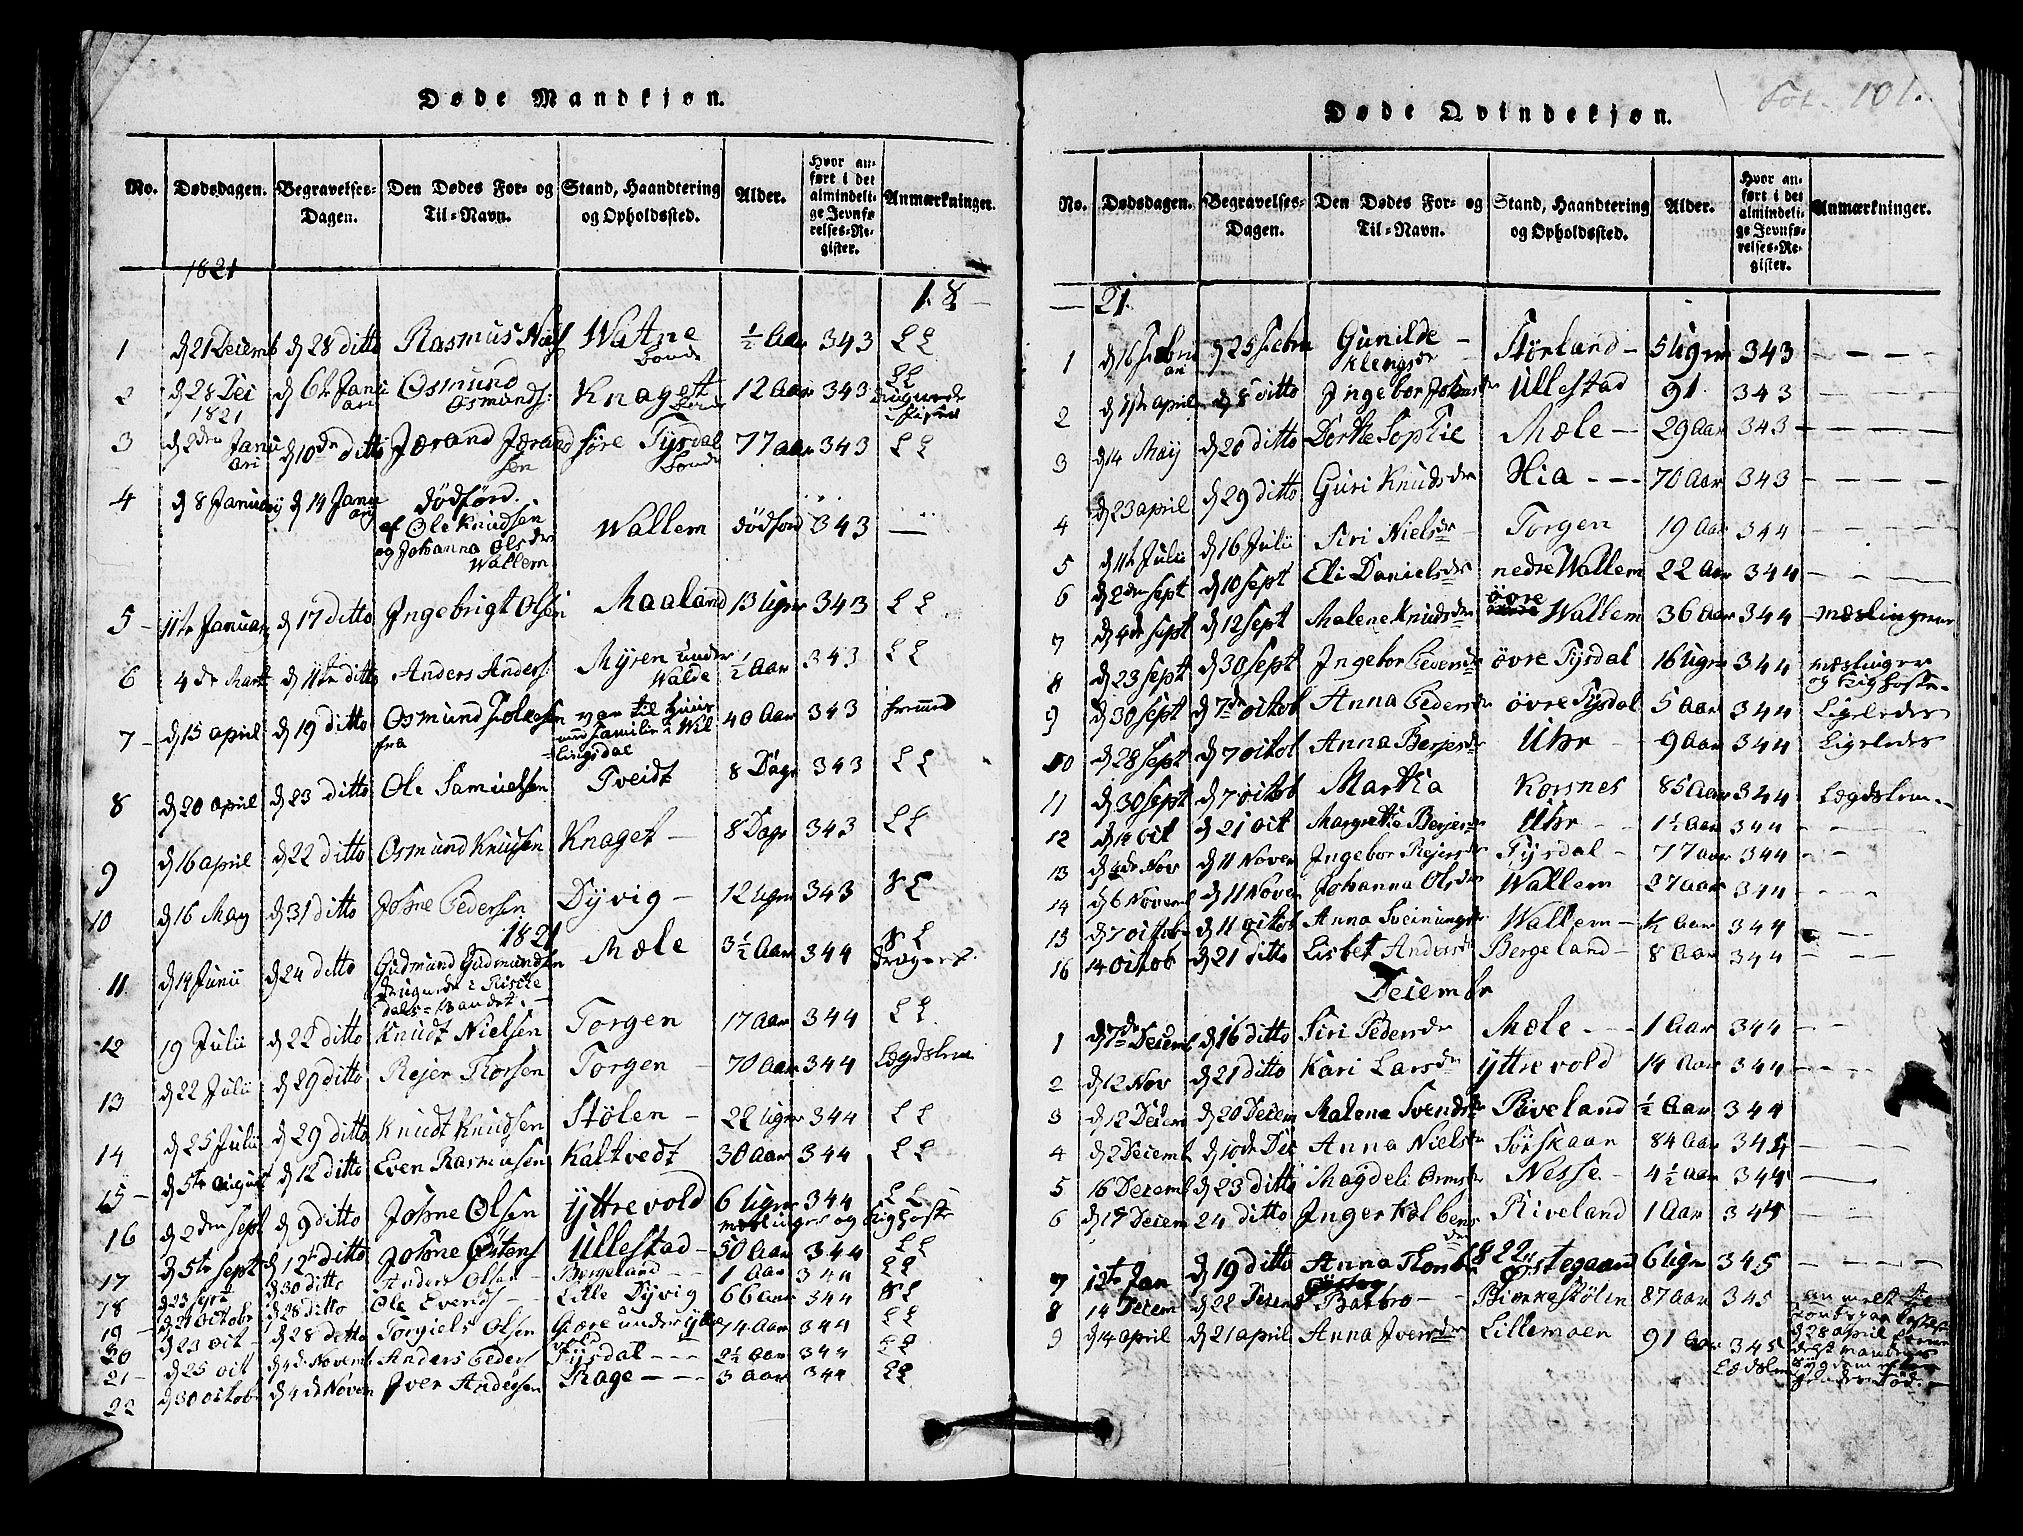 Døde Mandkjøn.
No. Dødsdagen. Begravelses-Dagen. Den Dødes For- og Til-Navn. Stand, Haandtering og Opholdssted. Alder. Hvor anført i det almindelige Jevnførelses-Register. Anmærkninger.
1821 18
1 d 21 Decemb d 28 ditto Rasmus Watne Bonde ½ Aar 343 L L
2 d 28 Dec d 6te Januari Osmund Osmunds: Knaget Bonde 12 Aar 343 L L
1821
3 d 2den Januari d 10de ditto Jærand Jærandsen søre Tysdal Bonde 77 aar 343 L L
4 d 8 Januarij d 14 Januarij dödförd af Ole Knudsen og Johanna Olsdr Wallem Wallem dödförd 343 —
5 11te Januar d 17 ditto Ingebrigt Olsen Maaland 13 Uger 343 L L
6 4de Mart d 11te ditto Anders Anders: Myren under Walde ½ Aar 343 L L
7 d 15 april d 19 ditto Osmund fra var til huus familie i 40 Aar 343
8 d 20 april d 23 ditto Ole Samuelsen Tveidt 8 Dage 343 L L
9 d 16 april d 22 ditto Osmund Knudsen Knaget 8 Dage 343 L L
10 d 16 May d 31 ditto Johne Pedersen Dyvig 12 Uger 343 L
1821
11 d 14 Junii d 24 ditto Gudmund Gudmundsen Mæle 3½ Aar 344 L
12 19 Julii d 22 ditto Knudt Nielsen Torgen 17 Aar 344 L L
13 d 22 Julii d 29 ditto Rejer Thorsen Torgen 70 Aar 344 Lægdslem
14 d 25 Julii d 29 ditto Knudt Knudsen Stölen 22 Uger 344 L L
15 d 5te august d 12 ditto Even Rasmusen Kaltvedt 30 Aar 344 L L
16 d 2den Sept d 9 ditto Johne Olsen Yttrevold 6 Uger 344 L L
meslinger og Kighoste
17 d 5te Sept d 12te ditto Johne Østens Ullestad 50 Aar 344 L L
18 d 23 Sept d 30 ditto Anders Olsen Bergeland 1 Aar 344 L L
19 d 21 October d 28 ditto Ole Evends Litle Dyvig 66 aar 344 L
20 d 23 oct d 28 ditto Torgiels Olsen Giøre under Yttre vold 74 aar 344 L L
21 d 25 oct d 4de Novemb Anders Peders Tysdal 2½ Aar 344 L L
22 d 30 october d 4de Novem Iver Andersen Rage 3 Aar 344 L L
Døde Qvindekjøn.
Fol. 101.
No. Dødsdagen. Begravelses-Dagen. Den Dødes For- og Til-Navn. Stand, Haandtering og Opholdssted. Alder. Hvor anført i det almindelige Jevnførelses-Register. Anmærkninger.
21.
1 d 16 Februari d 25 Febru Gunilde Klengsdr Störland 5 Uger 343
2 d 1ste april d 8 ditto Ingebor Johnsdr Ullestad 91. 343
3 d 14 May d 20 ditto Dorthe Sophie Mæle 29 Aar 343
4 d 23 april d 29 ditto Guri Knudsdr Hia 70 Aar 343
5 d 11te Julii d 16 Julii Siri Nielsdr Torgen 19 Aar 344
6 d 2den Sept d 10 Sept Eli Danielsdr nedre Wallem 22 Aar 344
7 d 4de Sept d 12 Sept Malene Knudsdr övre Wallem 36 Aar 344 Mæslinger
8 d 23 Sept d 30 Sept Ingebor Pedersdr övre Tysdal 16 Uger 344 mæslinger og Kighoste
9 d 30 Sept d 7de octob Anna Pedersdr övre Tysdal 5 Aar 344 Ligeledes
10 d 28 Sept d 7 octob Anna Berjesdr Uhr 9 Aar 344 Ligeledes
11 d 30 Sept d 7 octob Martha Korsnes 85 Aar 344 Lægdslem
12 d 14 oct d 21 oct Margrethe Berjesdr Uhr 1½ Aar 344
13 d 4de Nov d 11 Novem Ingebor Rejersdr Tysdal 77 aar 344
14 d 6 Novem d 11 Novem Johanna Olsdr Wallem 27 aar 344
15 d 7 octob d 11 octob Anna Sveinungsdr Wallem Aar 344
16 14 octob d 21 ditto Lisbet Andersdr Bergeland 8 Aar 344
December
1 d 7de Decemb d 16 ditto Siri Pedersdr Mæle 1 Aar 344
2 d 12 Nov d 21 ditto Kari Larsdr yttrevold 14 Aar 344
3 d 12 Decem d 20 Decem Malena Svendsdr Riveland ½ Aar 344
4 d 2 Decemb d 10de Dec Anna Nielsdr Sörskaar 84 Aar 344
5 16 Decemb d 23 ditto Magdeli Ormsdr Nesse 4½ Aar 344
6 d 17 Decem 24 ditto Inger Kolbensdr Riveland 1 Aar 344
1822
7 12te Jan d 19 ditto Anna Thorsdr Østegaard 6 Uger 345
8 14 Decem d 22 Decem Barbro Biørnestölen 87 Aar 345
9 d 14 april d 21 april Anna Iversdr Lillemoen 91 Aar 345 Lægdslem